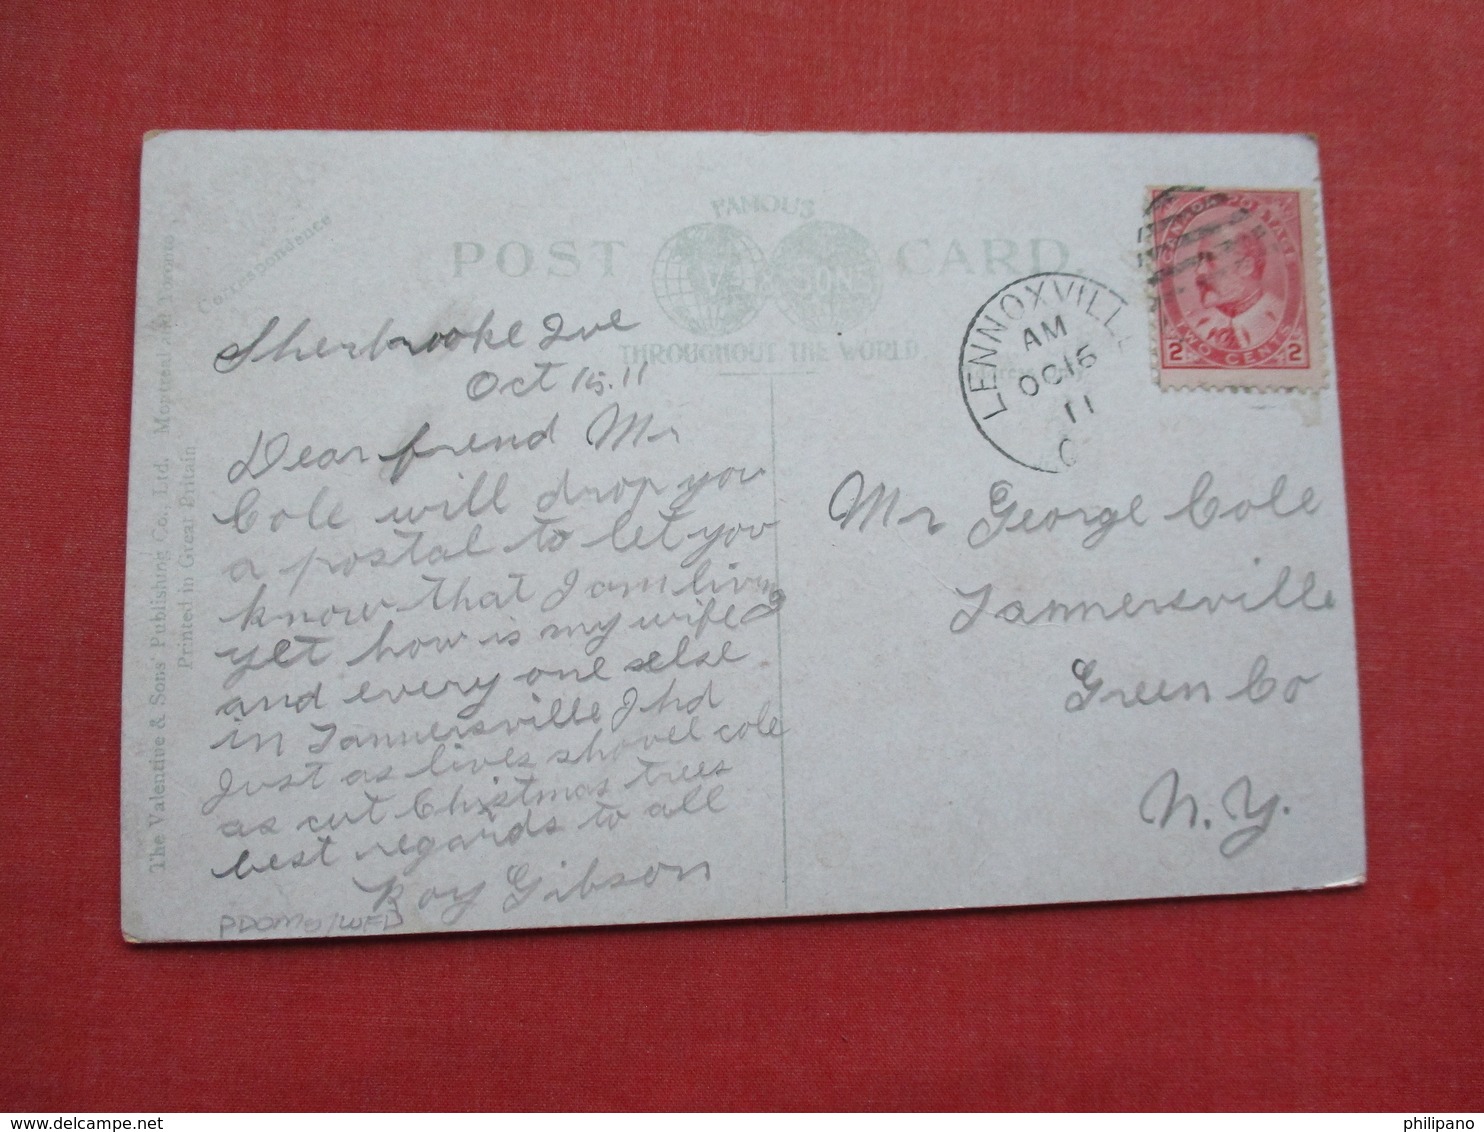 The Valentine & Sons' Publishing Co., Ltd. Montreal and Toronto
Printed in Great Britain
Correspondence
FAMOUS
POST CARD.
V & SONS
THROUGHOUT THE WORLD
Sherbrooke Que
Oct 15. 11
Dear friend Mr
Cole will drop you
a postal to let you
know that I am living
yet how is my wife
and every one else
in Tannersville I hd
Just as lives shovel cole
as cut Christmas trees
best regards to all
Roy Gibson
LENNOXVILLE
AM
OC 16
11
CANADA POSTAGE
2 TWO CENTS 2
Mr George Cole
Tannersville
Green Co
N.Y.
philipano
www.delcampe.net